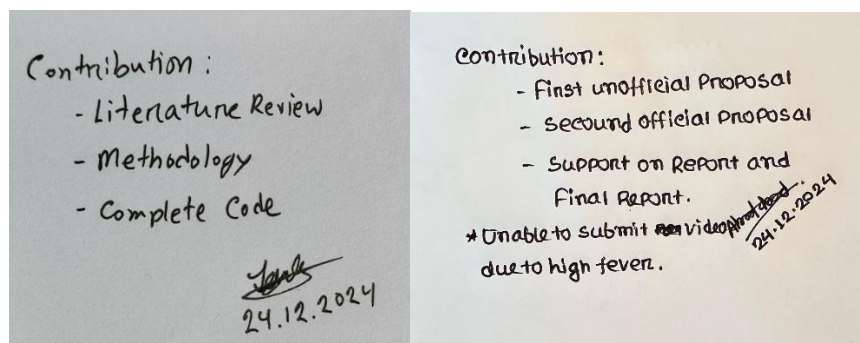 Contribution:
- Literature Review
- Methodology
- Complete Code
24.12.2024
Contribution:
- First unofficial Proposal
- Secound official Proposal
- Support on Report and
Final Report.
* Unable to submit video
due to high fever.
24.12.2024